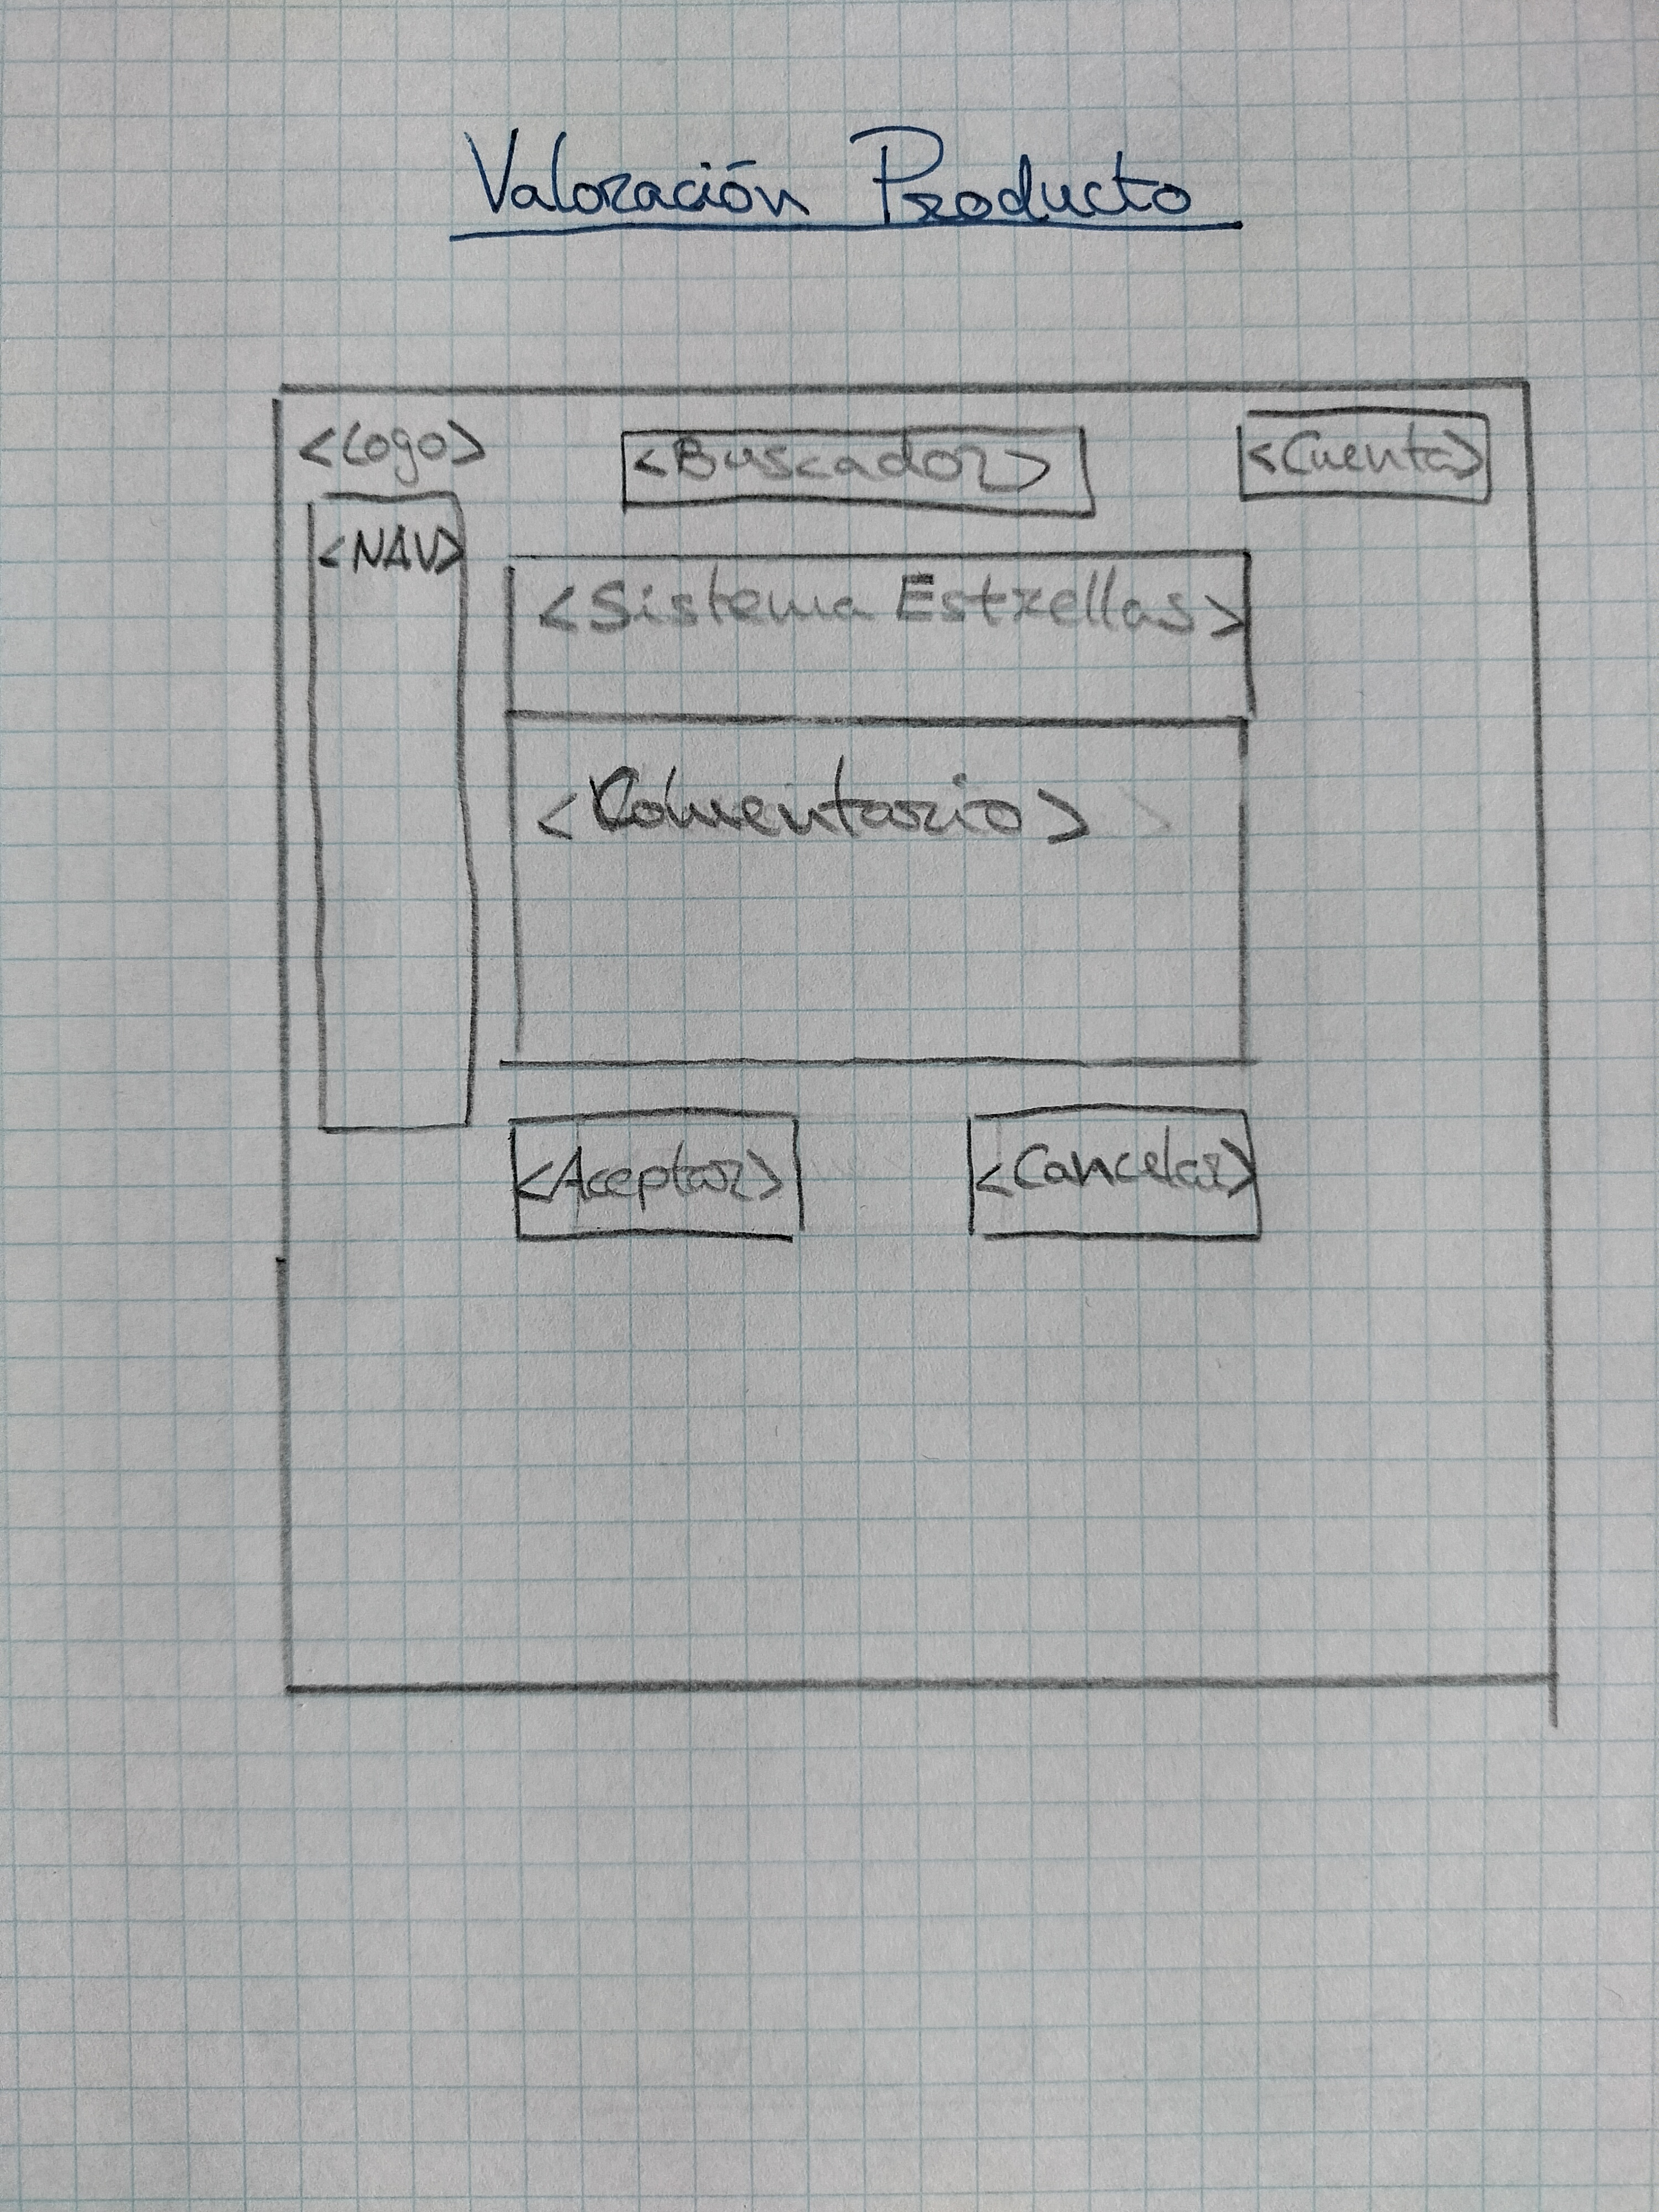 Valoración Producto
<Logo> <Buscador> <Cuenta>
<NAV>
<Sistema Estrellas>
<Comentario>
<Aceptar> <Cancelar>